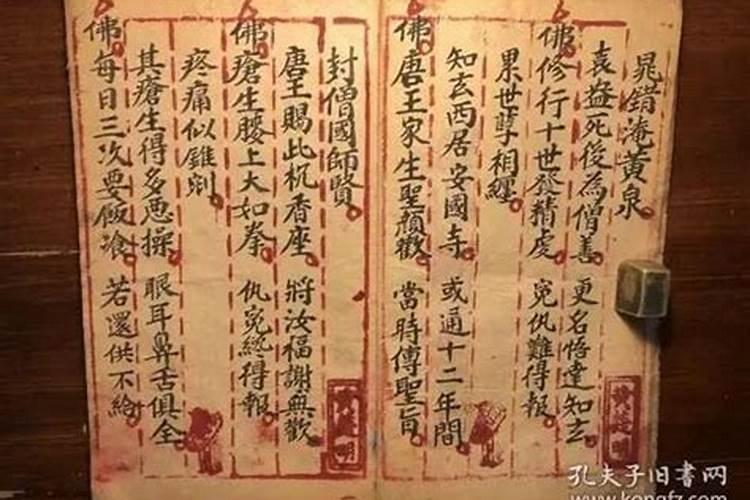 晁錯淹黄泉
袁盎死後為僧善 更名悟達知玄
佛修行十世發精虔 冤仇難得報
累世孽相纏
知玄西居安國寺 或通十二年間
佛唐王家生聖顏歡 當時傳聖旨
封僧國師賢
唐王賜此杋香座 將汝福謝無歡
佛瘡生腰上大如拳 仇冤終得報
疼痛似錐剜
其瘡生得多悪操 眼耳鼻舌俱全
佛每日三次要飯飡 若還供不給
孔夫子旧书网
www.kongfz.com